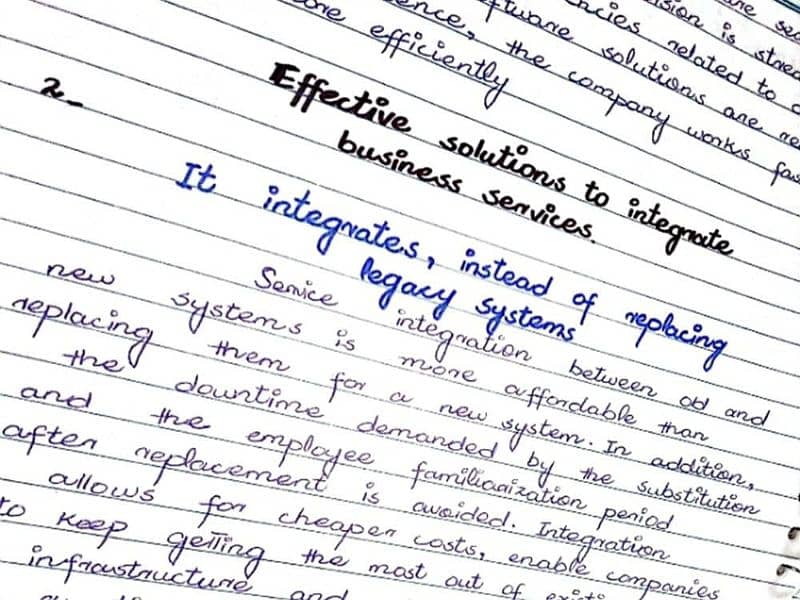 is stored
ence, software solutions are
related to
more efficiently the company works
2_ Effective solutions to integrate
business services.
It integrates, instead of replacing
legacy systems
Service integration between old and
new systems is more affordable than
replacing them for a new system. In addition,
the downtime demanded by the substitution
and the employee familiarization period
after replacement is avoided. Integration
allows for cheaper costs, enable companies
to keep getting the most out of
infraustructure and